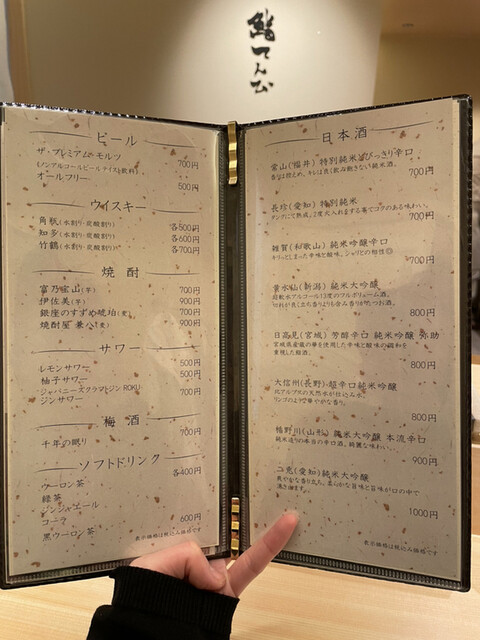 鮨てんひ
ビール
ザ・プレミアムモルツ 700円
(ノンアルコールビールテイスト飲料)
オールフリー 500円
ウイスキー
角瓶(水割り・炭酸割り) 各500円
知多(水割り・炭酸割り) 各600円
竹鶴(水割り・炭酸割り) 各700円
焼酎
富乃宝山(芋) 700円
伊佐美(芋) 900円
銀座のすずめ琥珀(麦) 700円
焼酎屋 兼八(麦) 900円
サワー
レモンサワー 500円
柚子サワー 500円
ジャパニーズクラフトジン ROKU
ジンサワー 700円
梅酒
千年の眠り 700円
ソフトドリンク
各400円
ウーロン茶
緑茶
ジンジャエール
コーラ
黒ウーロン茶 600円
表示価格は税込み価格です
日本酒
常山(福井) 特別純米 びっきり辛口
700円
長珍(愛知) 特別純米
700円
雑賀(和歌山) 純米吟醸辛口
キリッとしまった辛味と酸味。シャリとの相性◎
700円
貴水山(新潟) 純米大吟醸
800円
日高見(宮城) 芳醇辛口 純米吟醸 弥助
800円
大信州(長野) 超辛口純米吟醸
800円
楯野川(山形) 純米大吟醸 本流辛口
900円
二兎(愛知)純米大吟醸
1000円
表示価格は税込み価格です